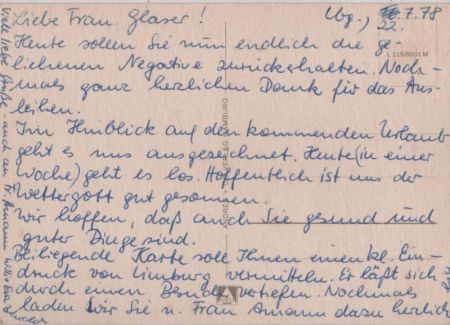 Liebe Frau Glaser!
Lbg., 22.7.78
Heute sollen Sie nun endlich die ge-
liehenen Negative zurückerhalten. Noch-
mals ganz herzlichen Dank für das Aus-
leihen.
Im Hinblick auf den kommenden Urlaub
geht es uns ausgezeichnet. Heute (in einer
Woche) geht es los. Hoffentlich ist uns der
Wettergott gut gesonnen.
Wir hoffen, daß auch Sie gesund und
guter Dinge sind.
Beiliegende Karte soll Ihnen einen kl. Ein-
druck von Limburg vermitteln. Er läßt sich
durch einen Besuch vertiefen. Nochmals
laden wir Sie u. Frau Amann dazu herzlich
Viele liebe Grüße - auch an Fr. Amann Willi Eva
L 115/6501 M